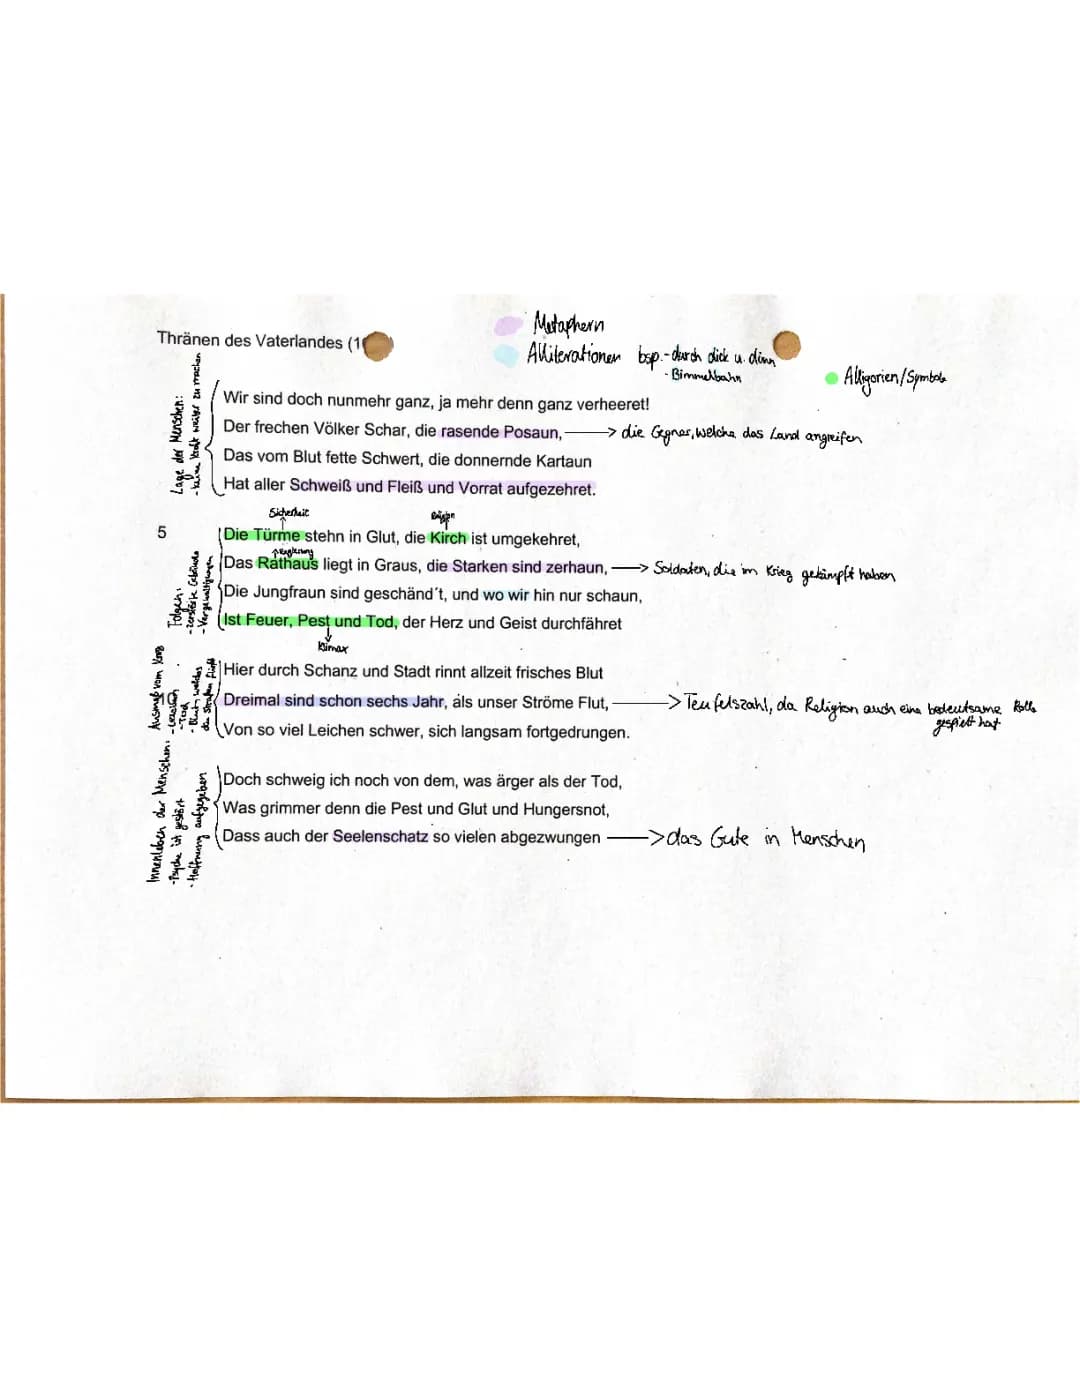 Metaphern
Thränen des Vaterlandes (1
Alliterationen bsp.-durch dick u. dünn
- Bimmelbahn
Alligorien/Symbole
Lage der Menschen:
- keine Kraft weiter zu machen
Wir sind doch nunmehr ganz, ja mehr denn ganz verheeret!
Der frechen Völker Schar, die rasende Posaun, -> die Gegner, welche das Land angreifen
Das vom Blut fette Schwert, die donnernde Kartaun
Hat aller Schweiß und Fleiß und Vorrat aufgezehret.
Sicherheit
5
Die Türme stehn in Glut, die Kirch ist umgekehret,
Regierung
Das Rathaus liegt in Graus, die Starken sind zerhaun, -> Soldaten, die im Krieg gekämpft haben
Die Jungfraun sind geschänd't, und wo wir hin nur schaun,
Ist Feuer, Pest und Tod, der Herz und Geist durchfähret
Klimax
Folgen:
- zerstörte Gebäude
- Vergewaltigungen
Hier durch Schanz und Stadt rinnt allzeit frisches Blut
10
Dreimal sind schon sechs Jahr, als unser Ströme Flut, -> Teufelszahl, da Religion auch eine bedeutsame Rolle
gespielt hat
Von so viel Leichen schwer, sich langsam fortgedrungen.
Ausmaß vom Krieg
- Tod
- Blut, welches
Doch schweig ich noch von dem, was ärger als der Tod,
Was grimmer denn die Pest und Glut und Hungersnot,
Dass auch der Seelenschatz so vielen abgezwungen -> das Gute in Menschen
Innenleben der Menschen:
- Psyche ist gestört
- Hoffnung aufgegeben